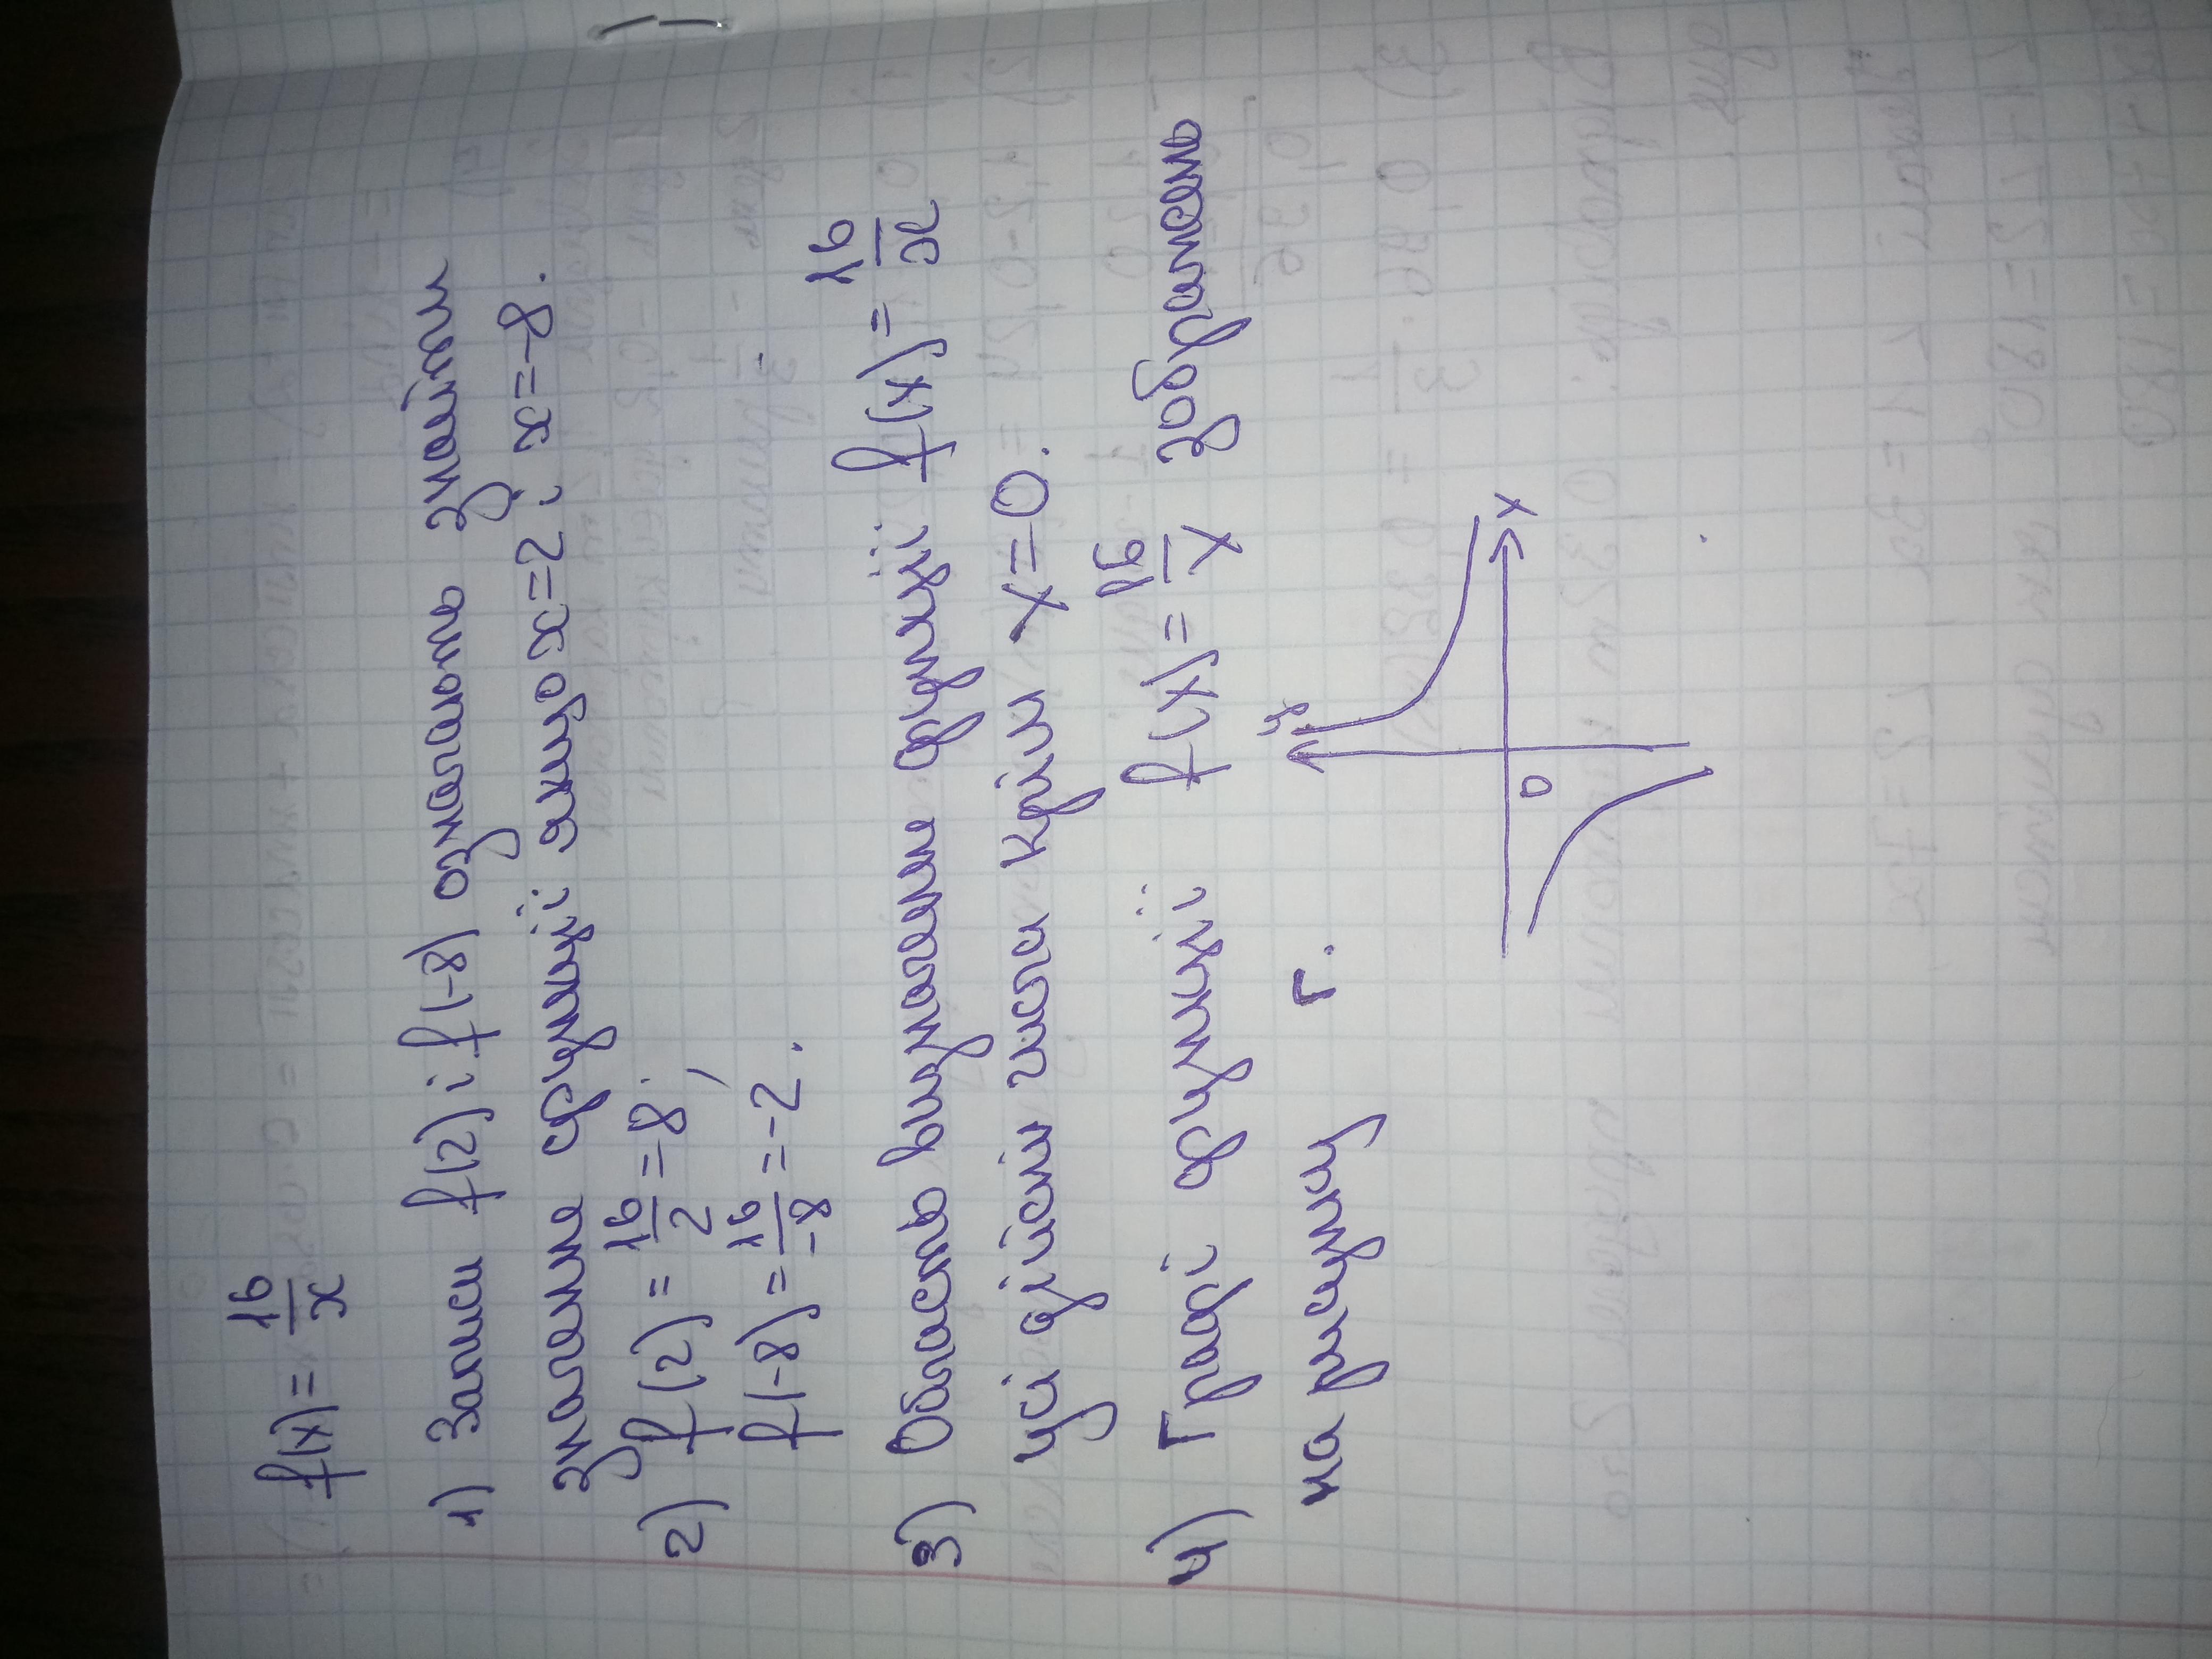 f(x) = 16/x
1) Записи f(2) і f(-8) означають знайти
значення функції: якщо x=2 і x=-8.
2) f(2) = 16/2 = 8;
f(-8) = 16/-8 = -2.
3) Область визначення функції f(x) = 16/x
усі дійсні числа крім x=0.
4) Граф функції f(x) = 16/x зображено
на рисунку г.
y
0
x